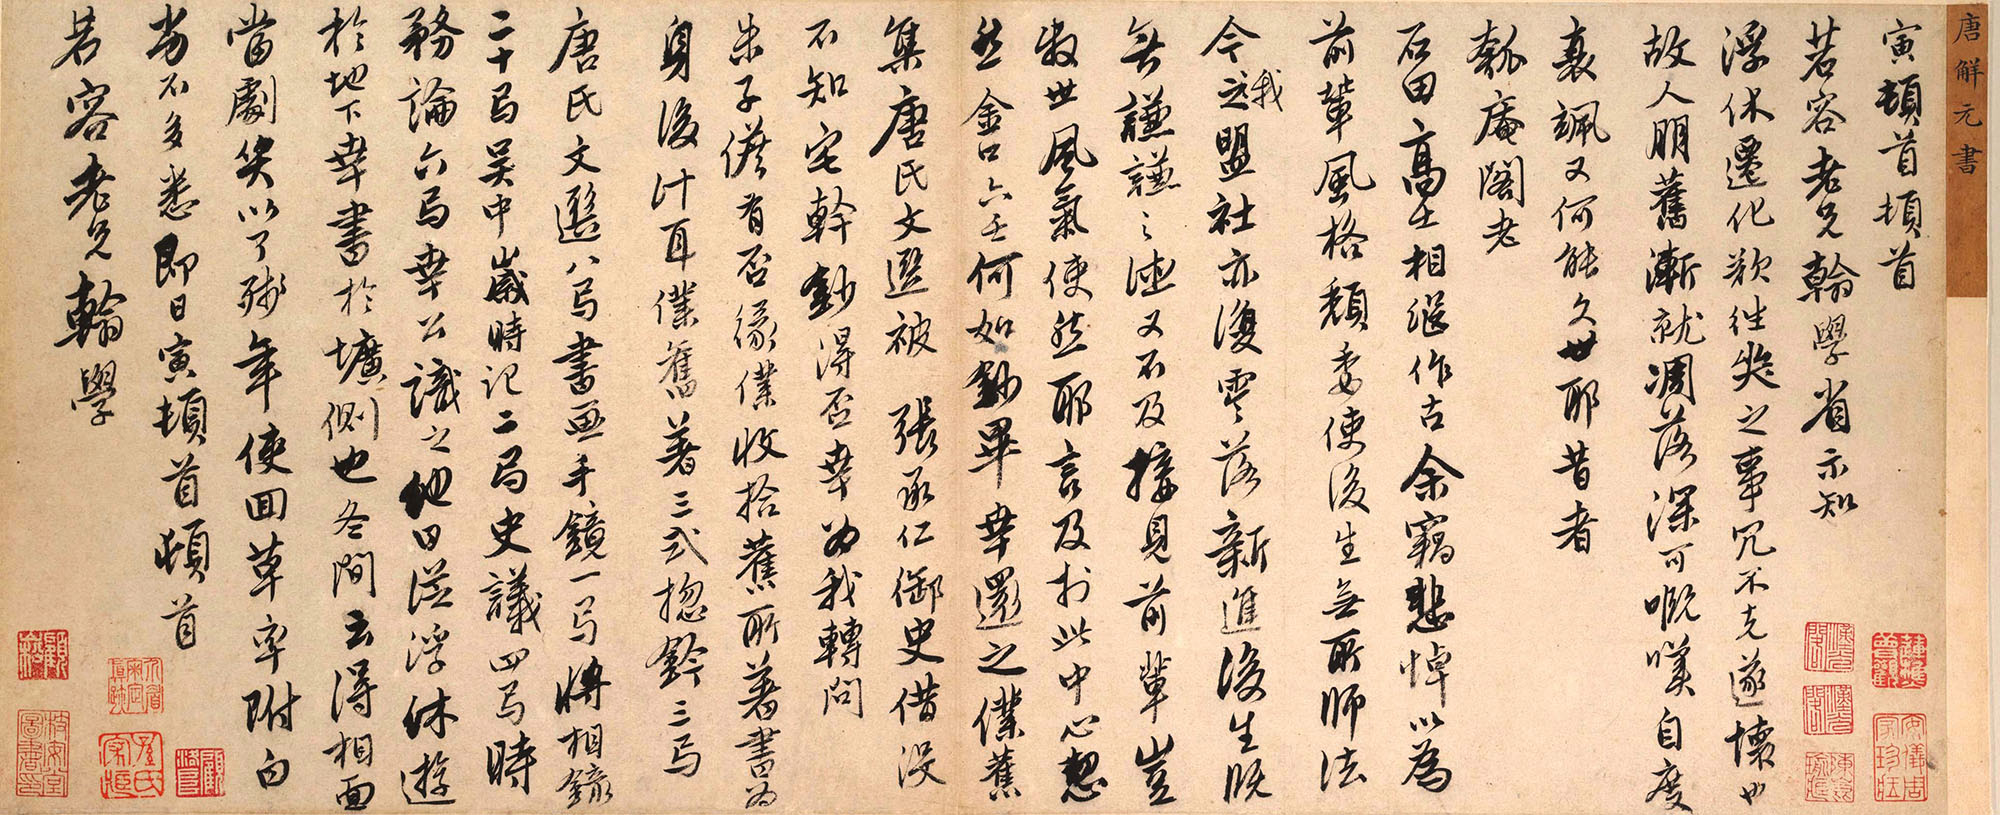 唐解元書
寅頓首頓首
若容老兄翰學省示知
浮休遷化欲往奬之事冗不克遂壞也
故人朋舊漸就凋落深可慨嘆自度
衰颯又何能久世耶昔者
瓠庵閣老
石田高士相继作古余竊悲悼以為
前輩風格頹委使後生無所師法
今我之盟社亦復零落新進後生既
無謙謙之德又不及接見前輩豈
數世風氣使然耶言及於此中心愬
然金口六壬何如鈔畢幸還之僕舊
集唐氏文選被張承仁御史借沒
不知宅幹鈔得否幸為我轉問
朱子儋有否緣僕收拾舊所著書為
身後計耳僕舊著三式揔鈐三局
唐氏文選八局書畫手鏡一局將相錄
二十局吳中歲時记二局史議四局時
務論六局幸公識之他日從浮休遊
於地下幸書於壙側也冬間云得相面
當劇笑以了殘年使回草率附白
劣不多悉即日寅頓首頓首
若容老兄翰學